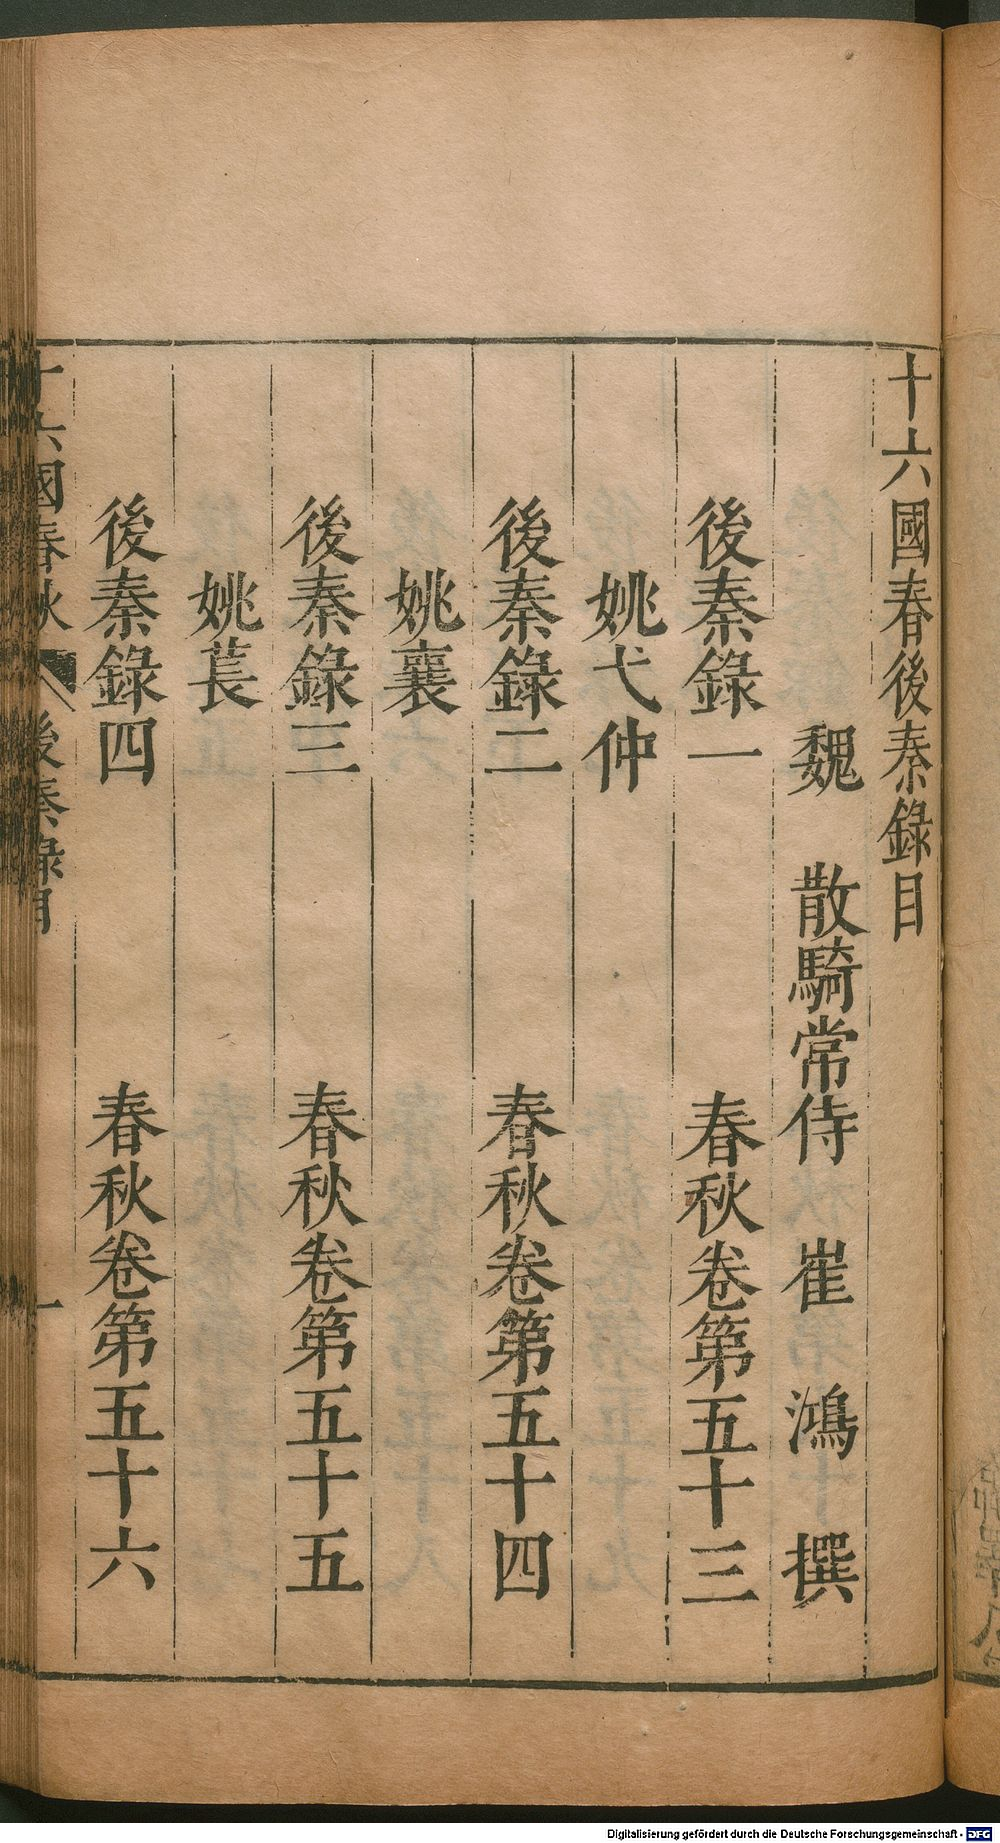 十六國春後秦錄目
魏 散騎常侍 崔 鴻 撰
後秦錄一 春秋卷第五十三
姚弋仲
後秦錄二 春秋卷第五十四
姚襄
後秦錄三 春秋卷第五十五
姚萇
後秦錄四 春秋卷第五十六
十六國春秋 後秦錄目 一
Digitalisierung gefördert durch die Deutsche Forschungsgemeinschaft - DFG